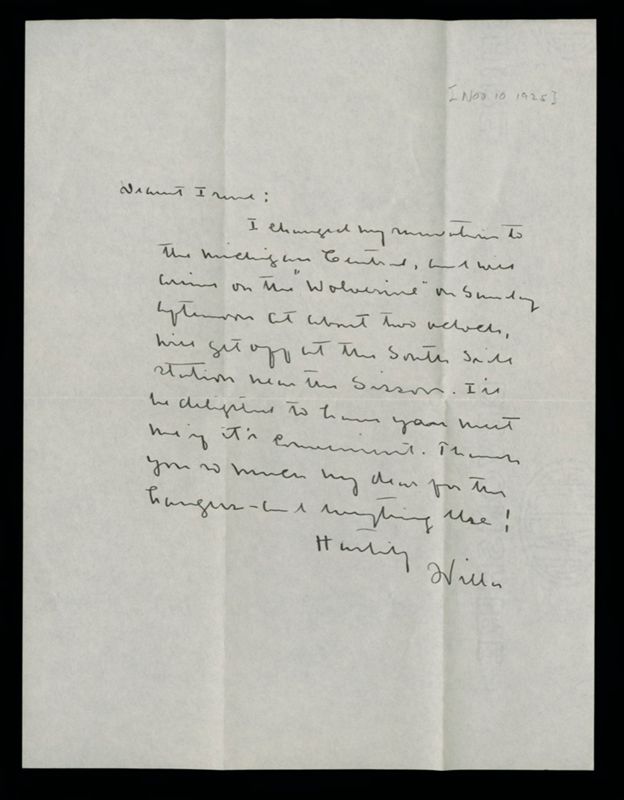 [Nov 10 1925]
Dearest Irene:
I changed my reservation to
the Michigan Central, and will
arrive on the "Wolverine" on Sunday
afternoon at about two o'clock,
will get off at the South Side
station near the Sisson. I'll
be delighted to have you meet
me if it's convenient. Thank
you so much my dear for the
hangers - and everything else!
Hastily
Willa